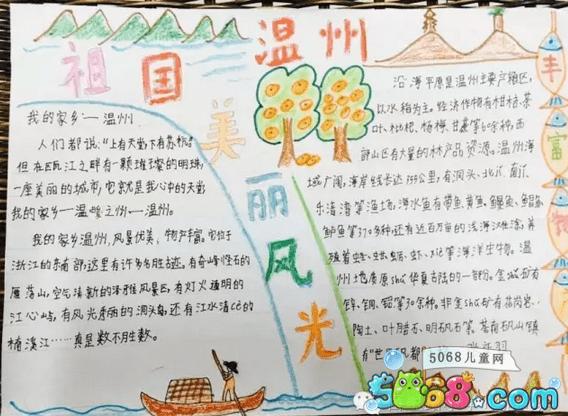 祖国 温州
美丽风光
丰富物
我的家乡——温州
人们都说:“上有天堂下有苏杭”
但在瓯江之畔有一颗璀璨的明珠,
一座美丽的城市,它就是我心中的天堂
我的家乡——温暖之州——温州。
我的家乡温州,风景优美,物产丰富。它位于
浙江的东南部,这里有许多名胜古迹,有奇峰怪石的
雁荡山,空气清新的泽雅风景区,有灯火通明的
江心屿,有风光秀丽的洞头岛,还有江水清澈的
楠溪江……真是数不胜数。
沿海平原是温州主要产粮区,
以水稻为主。经济作物有柑桔、茶
叶、枇杷、杨梅、甘蔗等60余种,西
部山区有大量的林产品资源。温州海
域广阔,海岸线长达355公里,有洞头、北几、南几、
乐清湾等渔场,海水鱼有带鱼、黄鱼、鳗鱼、鲳鱼
鲈鱼等370多种,还有近百万亩的浅海滩涂,养
殖着蛏、虫甘、蛎、虾、
等海洋生物。温
州地质属
华夏古陆的一部分。金
矿有
铜、铅等30余种。非金
矿有
陶土、叶腊石、明矾石等。苍南矾山镇
有“世
矾都”
5068儿童网
5068.com